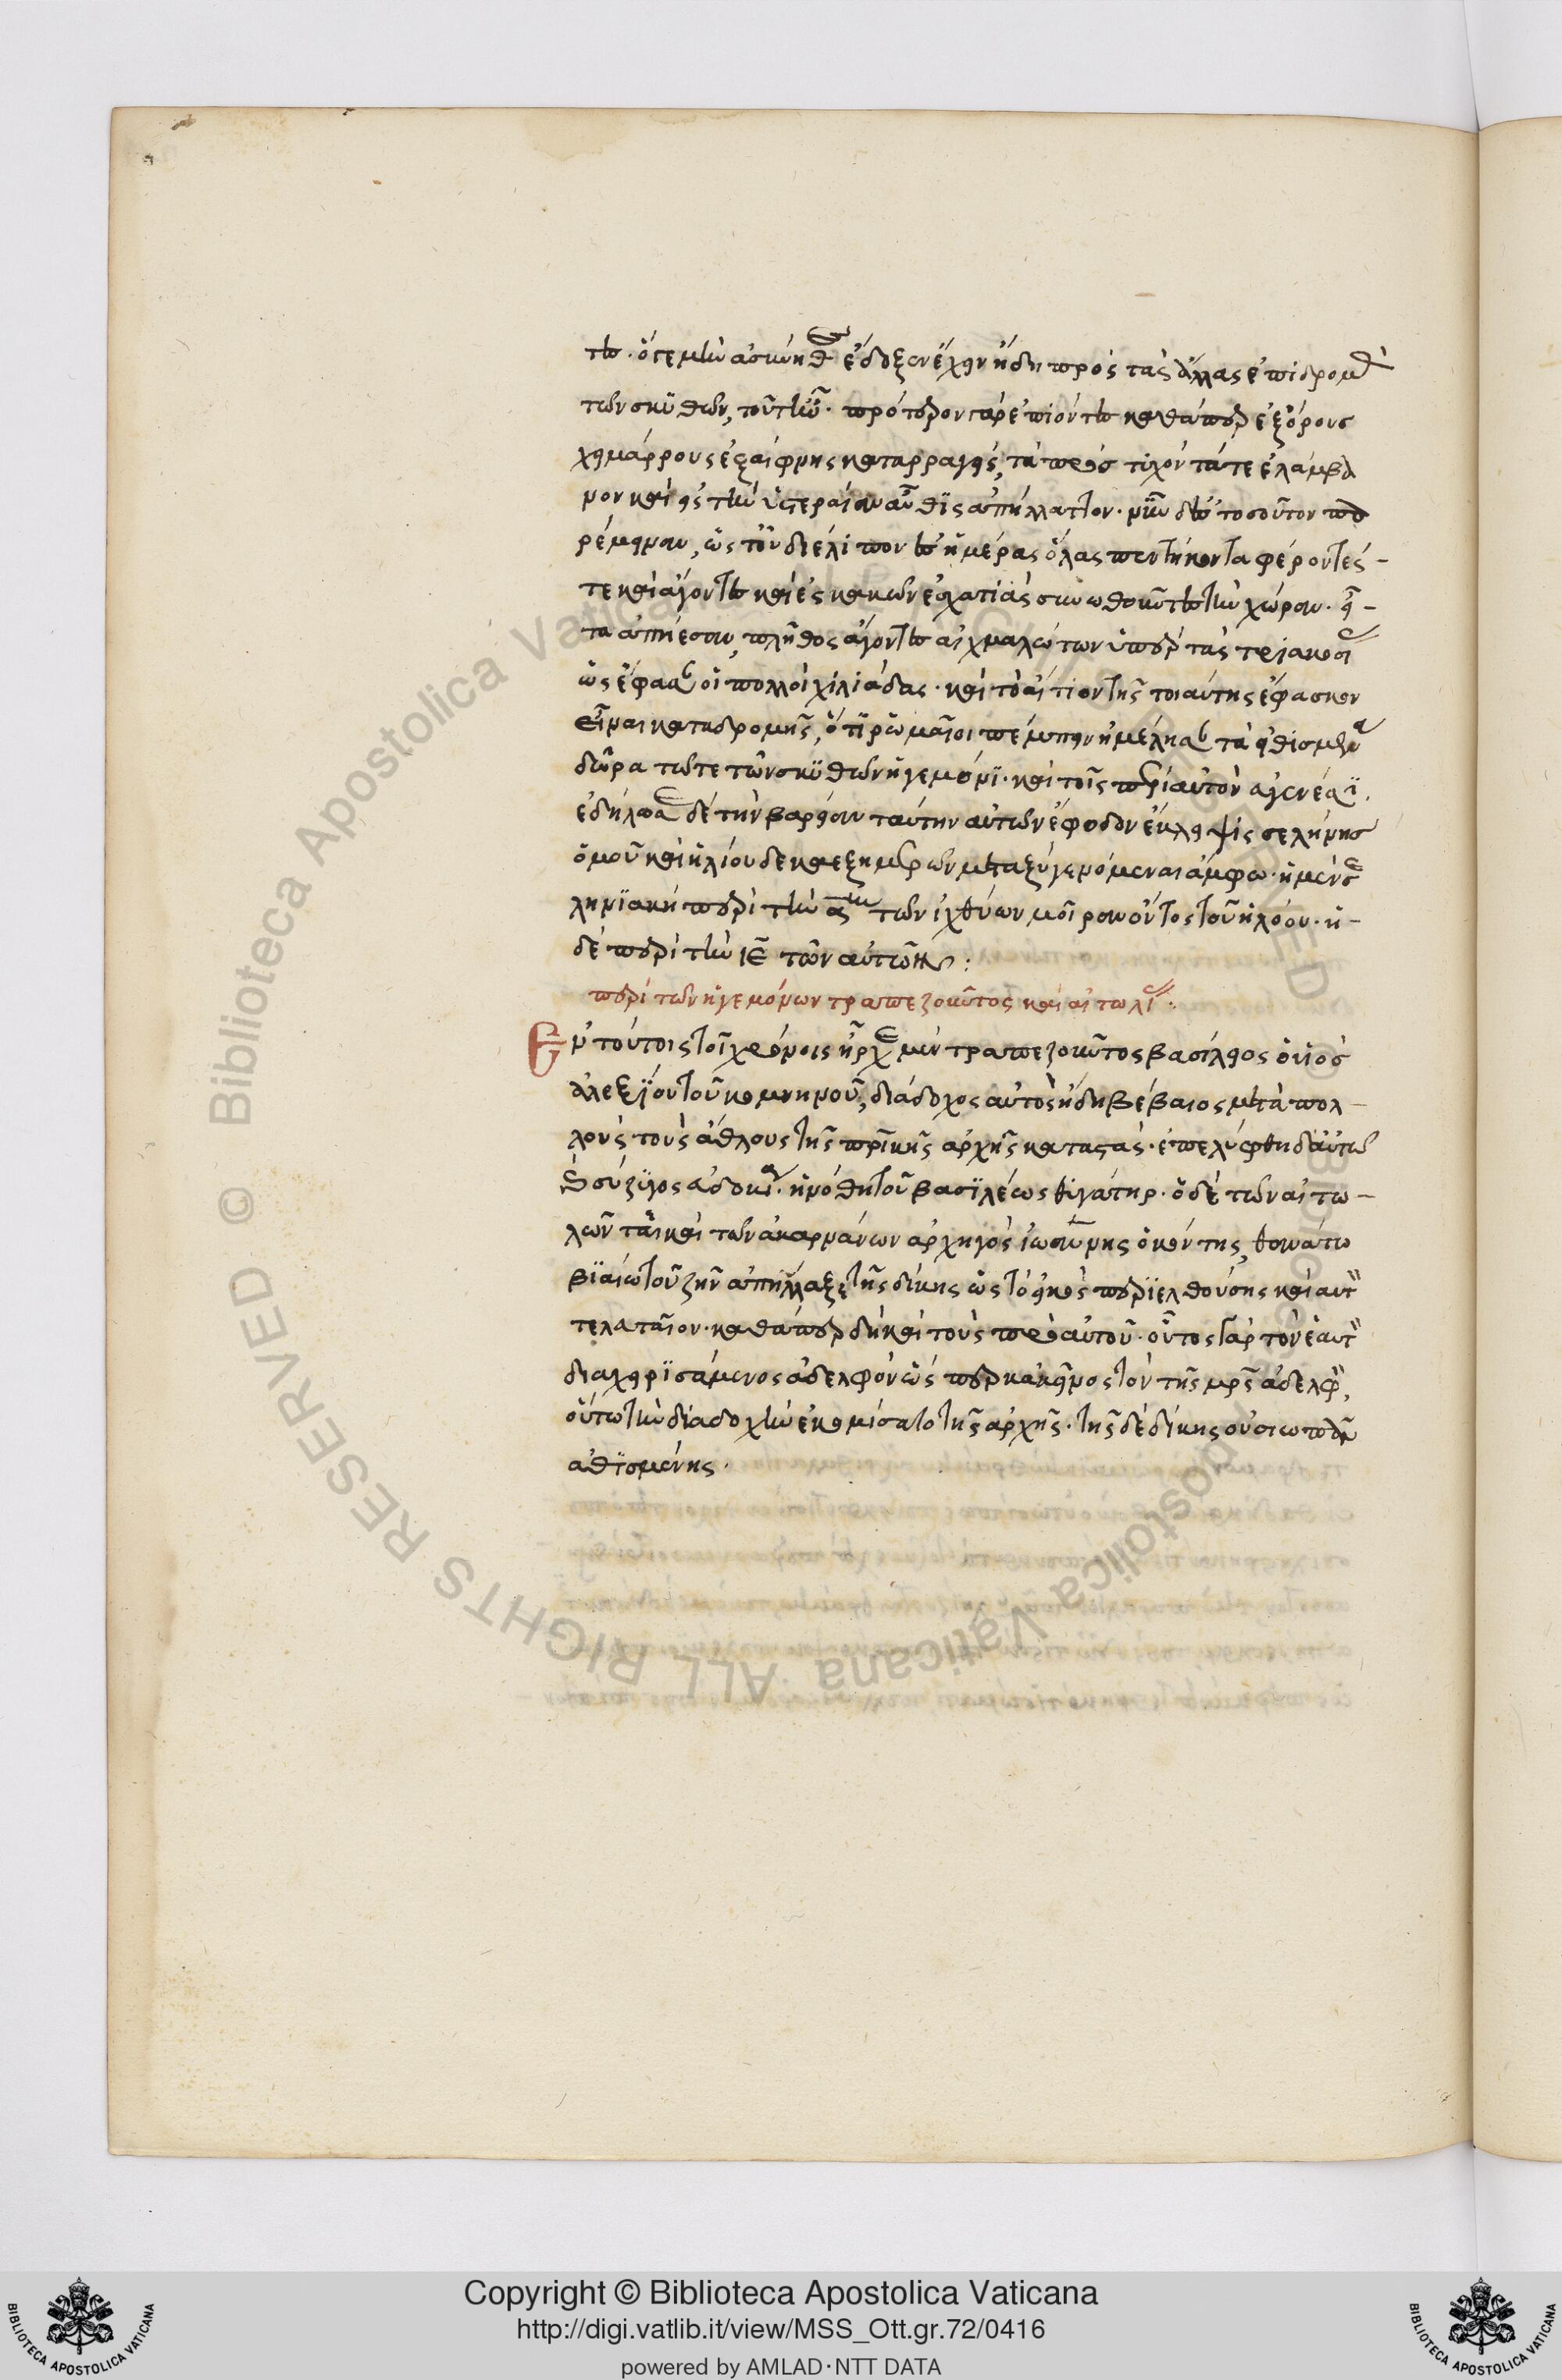 τες. ὅ γε μὴν ἀσύνηθες ἔδοξεν ἔχειν ἤδη πρὸς τὰς ἄλλας ἐπιδρομὰς
τῶν σκυθῶν, τοῦτ' ἦν. πρότερον γὰρ ἐπιόντες καθάπερ ἐξ ὄρους
χειμάρρους ἐξαίφνης καταρραγείς, τὰ προστυχόντα τε ἐλάμβα
νον καὶ εἰς τὴν ὑστεραίαν αὖθις ἀπηλλάττοντο. νῦν δ' ἐς τοσοῦτον πα
ρέμειναν, ὡς οὐ διέλιπον ἐς ἡμέρας ὅλας πεντήκοντα φέροντές-
τε καὶ ἄγοντες καὶ ἐς κακῶν ἐσχατιὰς συνωθοῦντες τὴν χώραν. εἶ-
τα ἀπῄεσαν, πλῆθος ἄγοντες αἰχμαλώτων ὑπὲρ τὰς τριακοσίας
ὡς ἔφασαν οἱ πολλοὶ χιλιάδας. καὶ τὸ αἴτιον τῆς τοιαύτης ἔφασκον
εἶναι καταδρομῆς, ὅτι ῥωμαῖοι πέμπειν ἠμέλησαν τὰ εἰθισμένα
δῶρα τῷ τε τῶν σκυθῶν ἡγεμόνι. καὶ τοῖς περὶ αὐτὸν
ἐδήλωσε δὲ τὴν βαρεῖαν ταύτην αὐτῶν ἔφοδον ἔκλειψις σελήνης
ὁμοῦ καὶ ἡλίου δεκαὲξ ἡμερῶν μεταξὺ γενόμεναι ἄμφω. ἡ μὲν σε
ληνιακὴ περὶ τὴν αην τῶν ἰχθύων μοῖραν ὄντος τοῦ ἡλίου. ἡ-
δὲ περὶ τὴν ιε τῶν αὐτῶν:
περὶ τῶν ἡγεμόνων τραπεζοῦντος καὶ αἰτωλίας:
Εν τούτοις τοῖς χρόνοις ἦρχε μὲν τραπεζοῦντος βασίλειος ὁ υἱὸς
ἀλεξίου τοῦ κομνηνοῦ, διάδοχος αὐτὸς ἤδη βέβαιος μετὰ πολ-
λοὺς τοὺς ἄθλους τῆς πατρικῆς ἀρχῆς καταστάς. ἐπελύφθη δ' αὐτῷ
ἐς σύζυγος ἀδοκία. ἡ νόθη τοῦ βασιλέως θυγάτηρ. ὁ δὲ τῶν αἰτω-
λῶν τε καὶ τῶν ἀκαρνάνων ἀρχηγὸς ἰωάννης ὁ κόντης, θανάτῳ
βιαίῳ τοῦ ζῆν ἀπήλλαξε τῆς δίκης ὡς τὸ εἰκὸς περιελθούσης καὶ αὐτὸν
τελευταῖον. καθάπερ δὴ καὶ τοὺς πρὸ αὐτοῦ. οὗτος γὰρ τὸν ἑαυτοῦ
διαχειρισάμενος ἀδελφὸν ὥσπερ κἀκεῖνος τὸν τῆς μητρὸς ἀδελφόν,
οὕτω τὴν διαδοχὴν ἐκομίσατο τῆς ἀρχῆς. τῆς δὲ δίκης οὐ σιωπᾶν
εἰθισμένης.
Copyright © Biblioteca Apostolica Vaticana
http://digi.vatlib.it/view/MSS_Ott.gr.72/0416
powered by AMLAD·NTT DATA